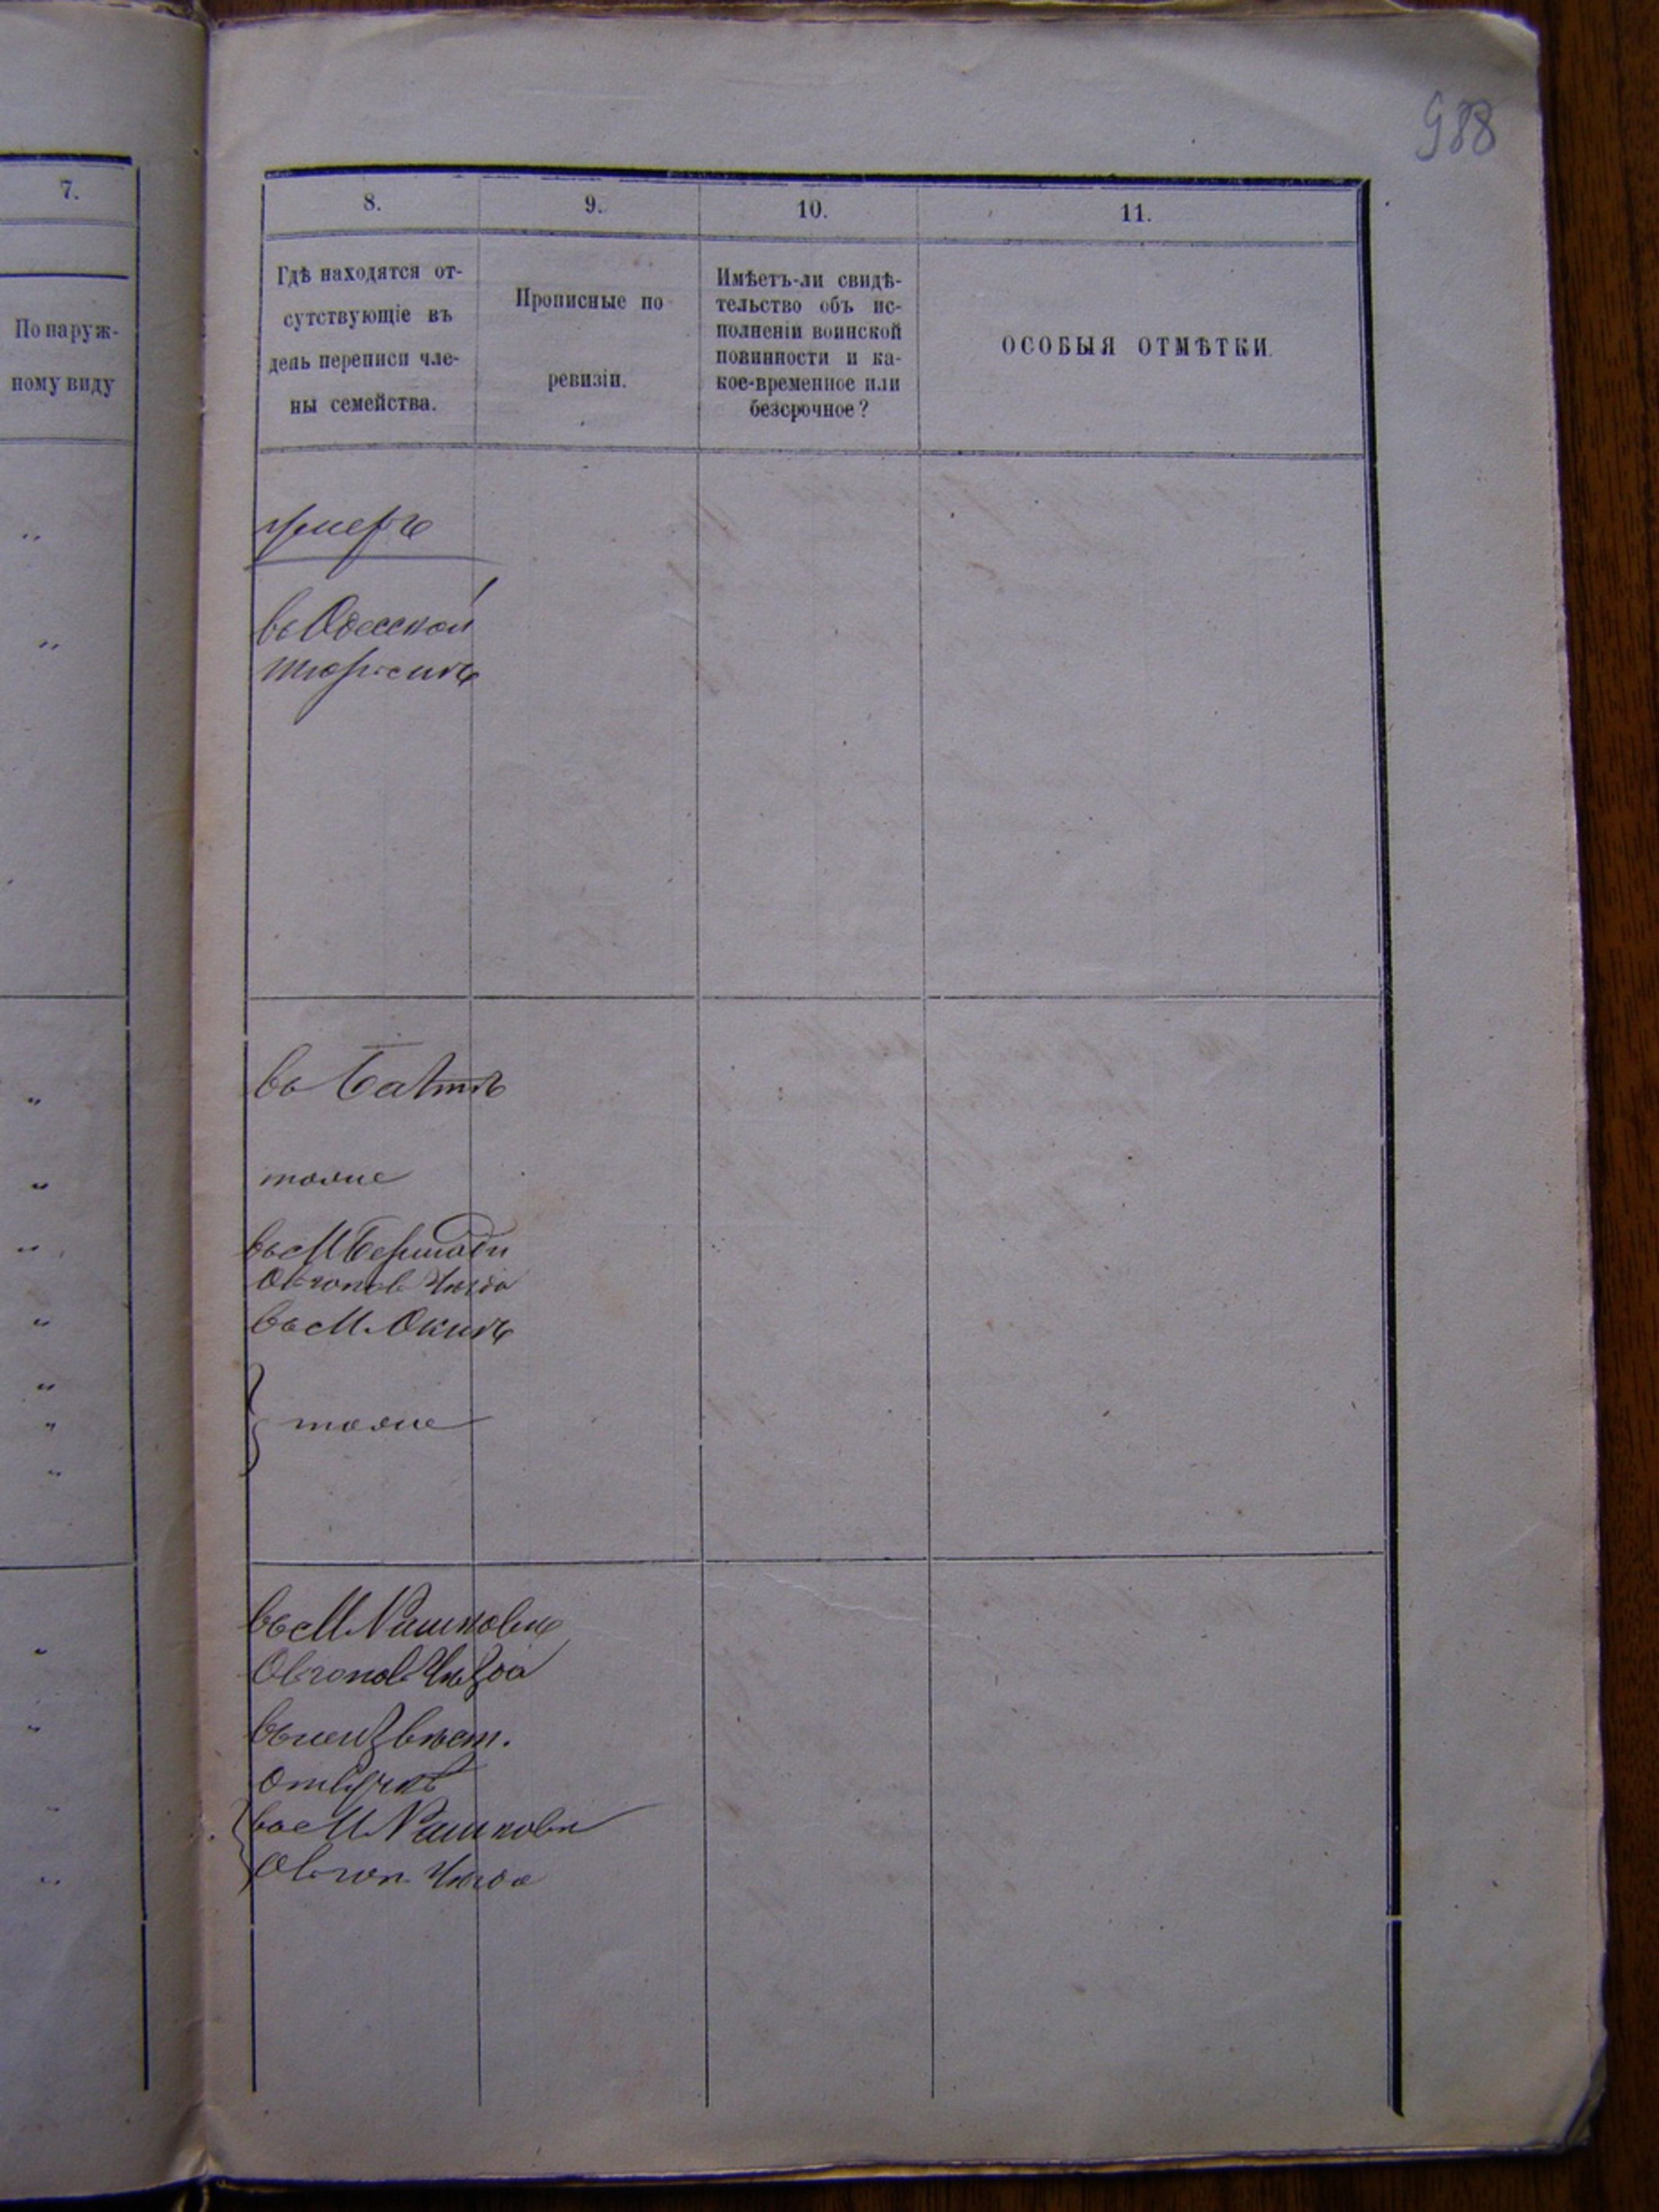 988
7.
По наруж-
ному виду
8.
9.
10.
11.
Гдѣ находятся от-
сутствующіе въ
день переписи чле-
ны семейства.
Прописные по
ревизіи.
Имѣетъ-ли свидѣ-
тельство объ ис-
полненіи воинской
повинности и ка-
кое-временное или
безсрочное?
ОСОБЫЯ ОТМѢТКИ.
умеръ
въ Одесской
тюрьмѣ
въ Балтѣ
тоже
въ М Бершади
въ М. Окнѣ
тоже
въ М. Рашковѣ
въ неизвѣст.
отлучкѣ
въ М. Рашковѣ